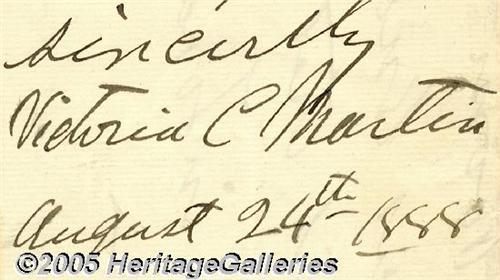 Sincerely
Victoria C Martin
August 24th 1888
©2005 HeritageGalleries